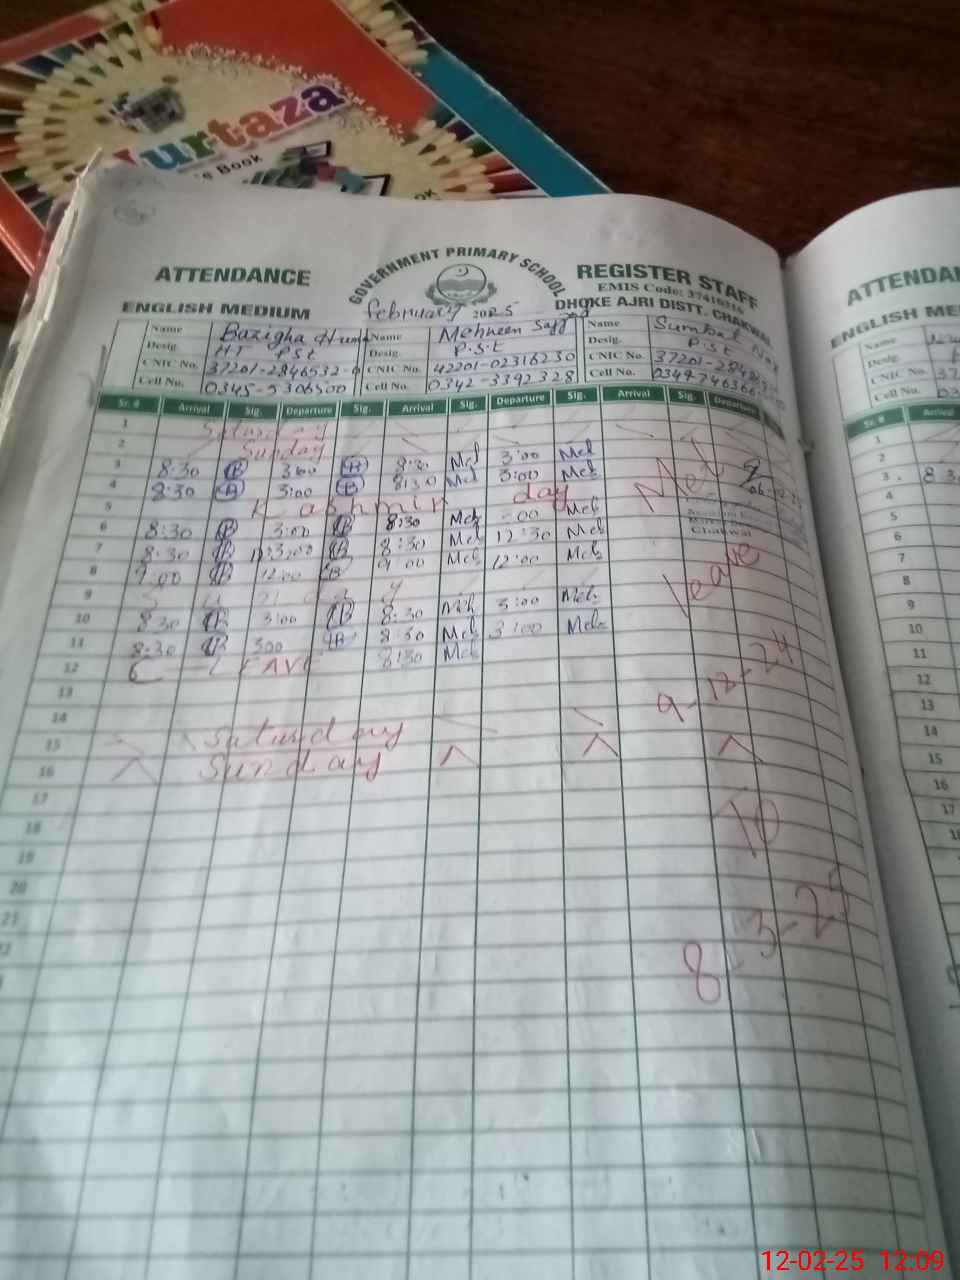 urtaza
's Book
ATTENDANCE
GOVERNMENT PRIMARY SCHOOL
REGISTER STAFF
EMIS Code:
ENGLISH MEDIUM
February 2025
DHOKE AJRI DISTT. CHAKWAL
Name Bazigha Huma Name Mehneen Name Sumbal
Desig. HT PST Desig. P.S.t Desig. P.S.t
CNIC No. 37201-2846532- CNIC No. 42201-02316230 CNIC No. 37201-
Cell No. 0345-5306500 Cell No. 0342-3392328 Cell No. 0344
Sr. # Arrival Sig. Departure Sig. Arrival Sig. Departure Sig. Arrival Sig. Departure
1 Saturday
2 Sunday
3 8:30 3:00 8:30 Meh 3:00 Meh
4 8:30 3:00 8:30 Meh 3:00 Meh
5 Kashmir day
6 8:30 3:00 8:30 Meh :00 Meh
7 8:30 8:30 Meh 12:30 Meh
8 9:00 12:00 9:00 Meh 12:00 Meh
9 Sunday
10 8:30 3:00 8:30 Meh 3:00 Meh
11 8:30 300 8:30 Meh 3:00 Meh
12 C- LEAVE 8:30 Meh
13
14
15 Saturday
16 Sunday
17
18
19
20
21
Chakwal
Leave
9-12-24
To
8-3-25
ATTENDAN
ENGLISH ME
Name
Desig.
CNIC No.
Cell No.
Sr. # Arrival
1
2
3
4
5
6
7
8
9
10
11
12
13
14
15
16
17
12-02-25 12:09